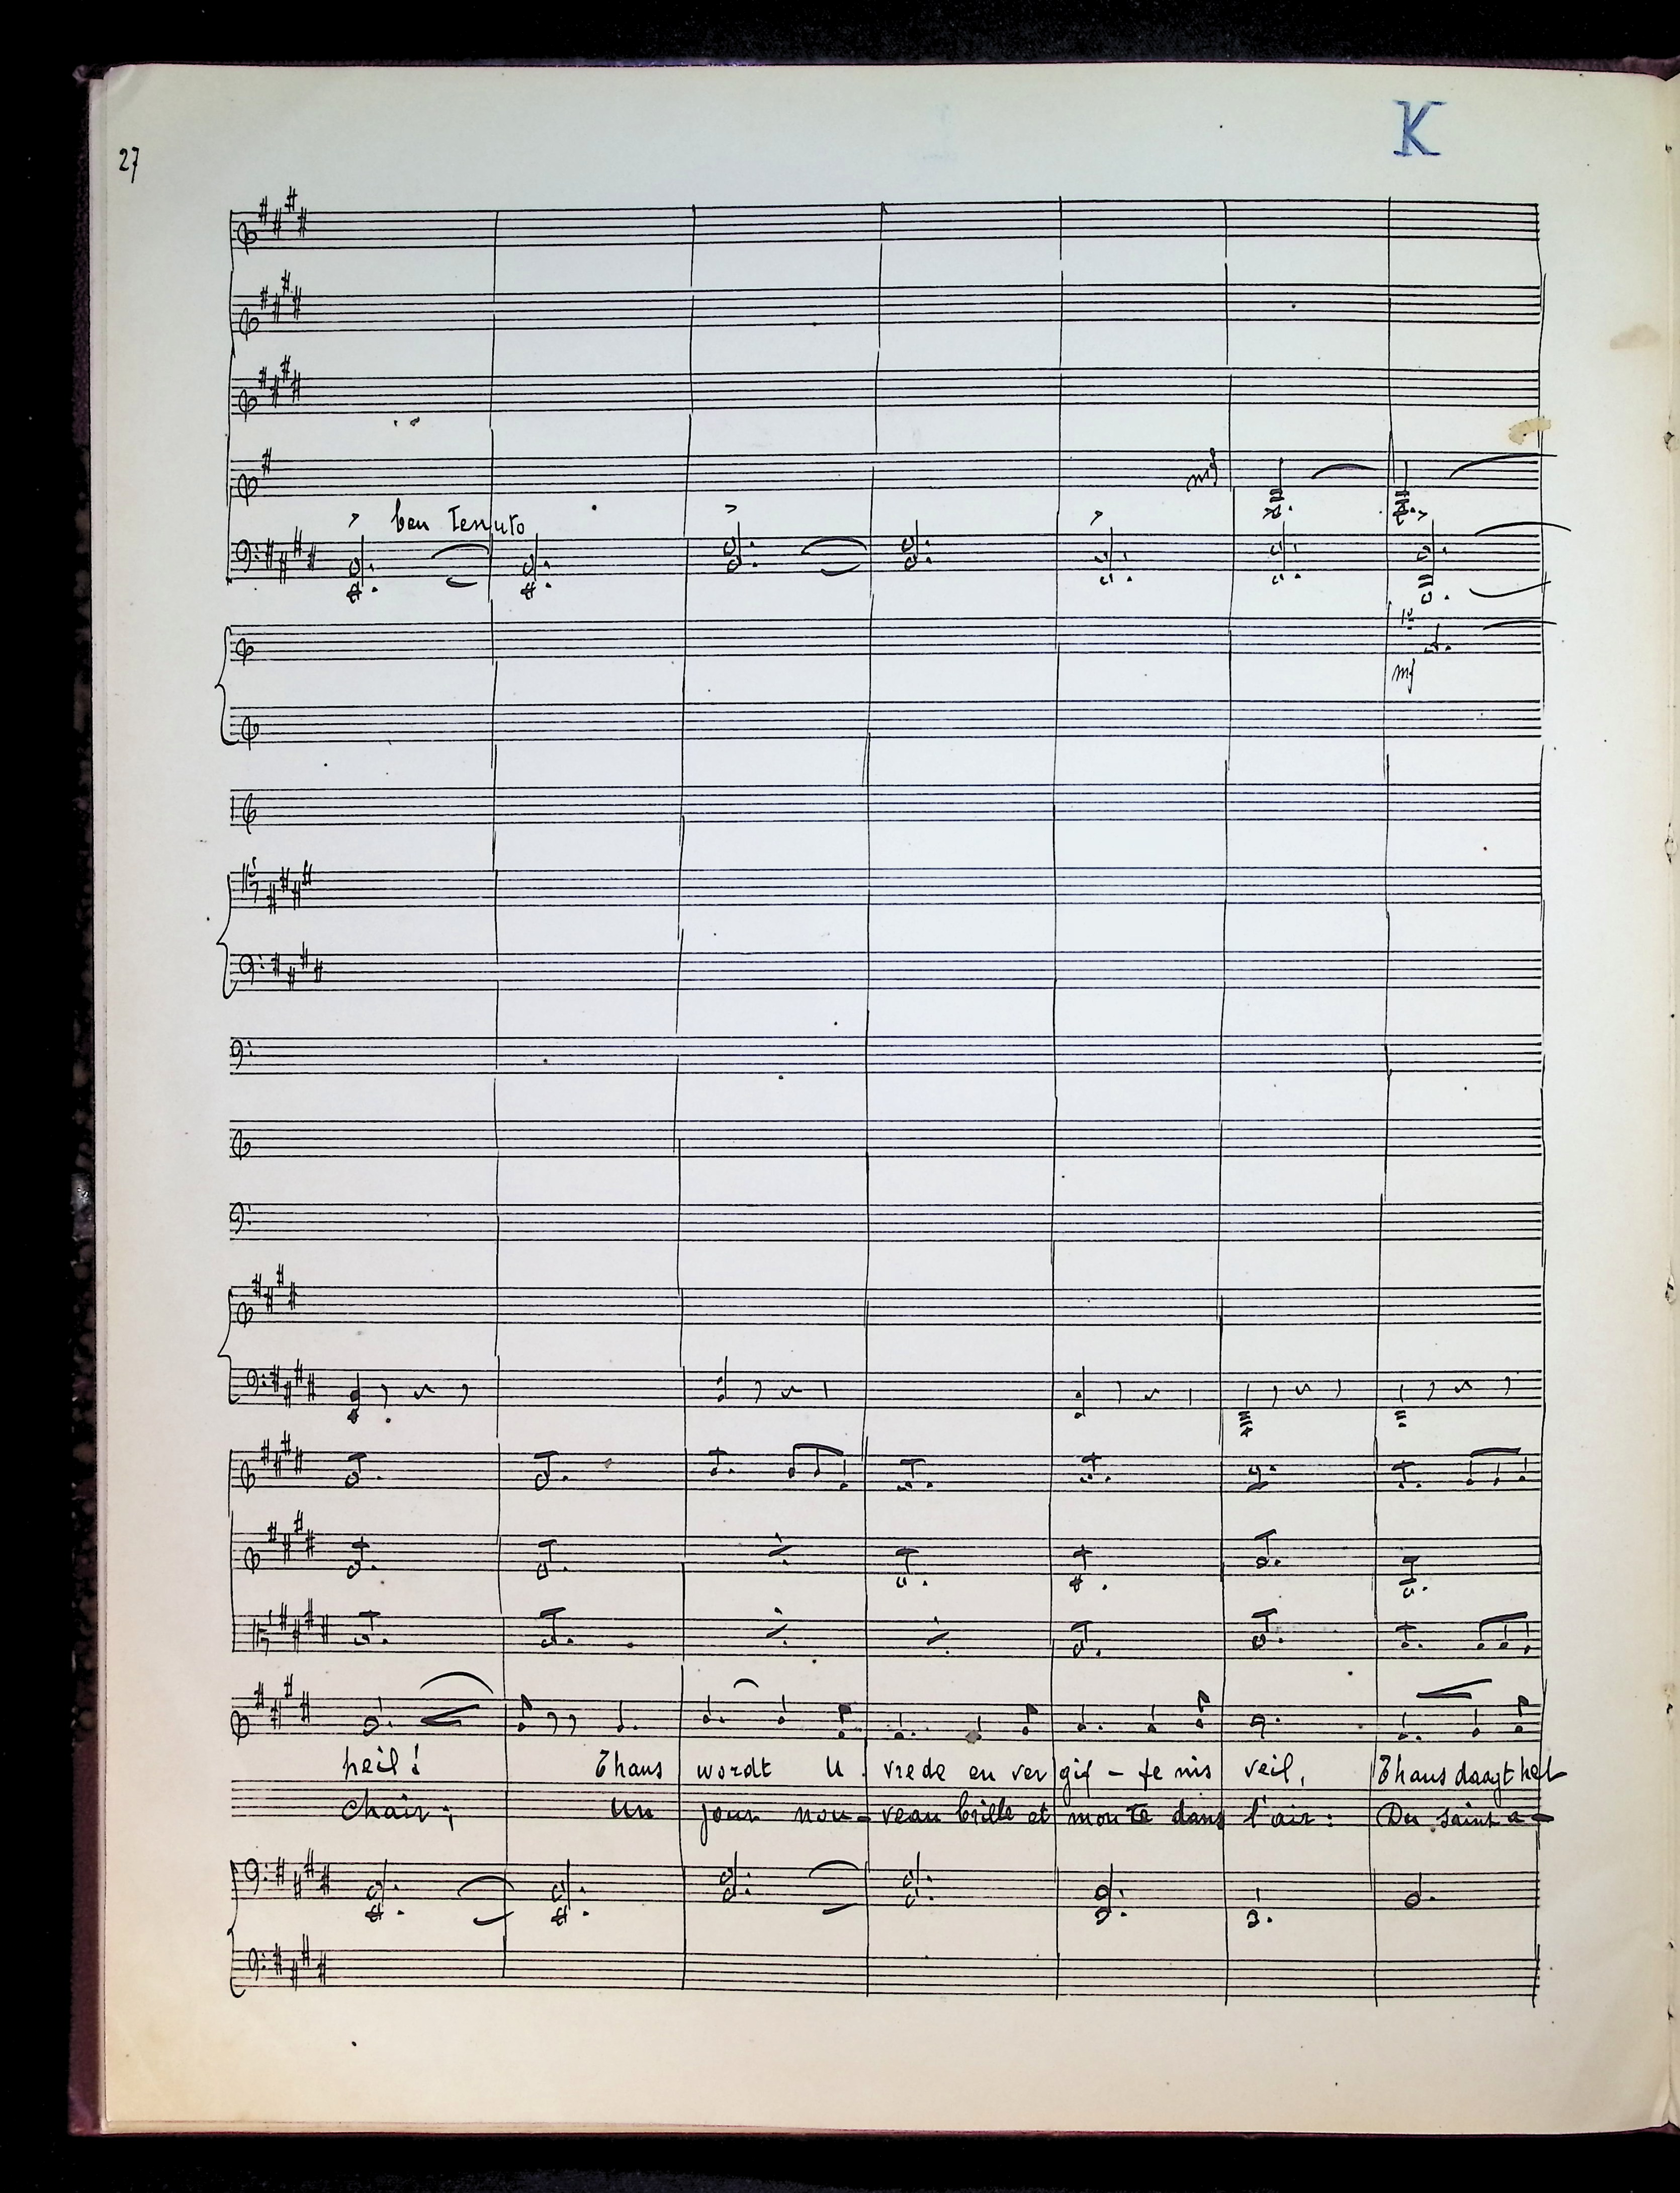 K
27
mf
ben Tenuto
1º
mf
heil! Thans wordt U vrede en ver gif - fe nis veil, Thans daagt het
Chair; Un jour nou - veau brille et mon te dans l'air : Du saint a -